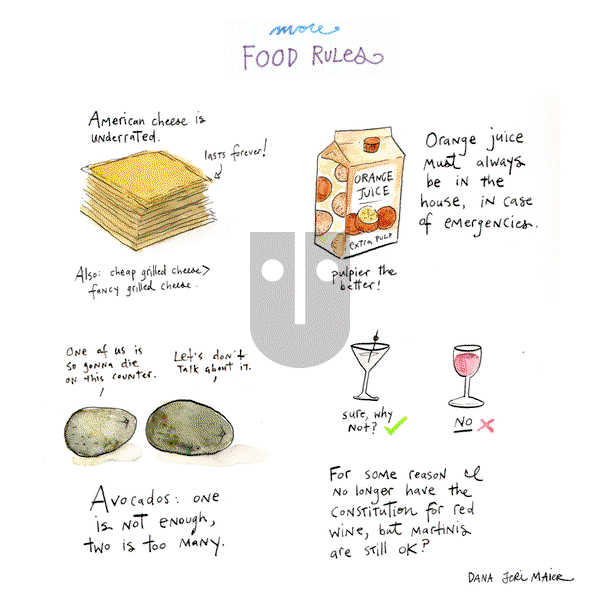 more
FOOD RULES
American cheese is
underrated.
lasts forever!
Also: cheap grilled cheese >
fancy grilled cheese.
ORANGE
JUICE
extra pulp
pulpier the
better!
Orange juice
must always
be in the
house, in case
of emergencies.
One of us is
so gonna die
on this counter.
Let's don't
talk about it.
Avocados: one
is not enough,
two is too many.
sure, why
not?
NO
For some reason I
no longer have the
constitution for red
wine, but martinis
are still OK?
DANA JERI MAIER